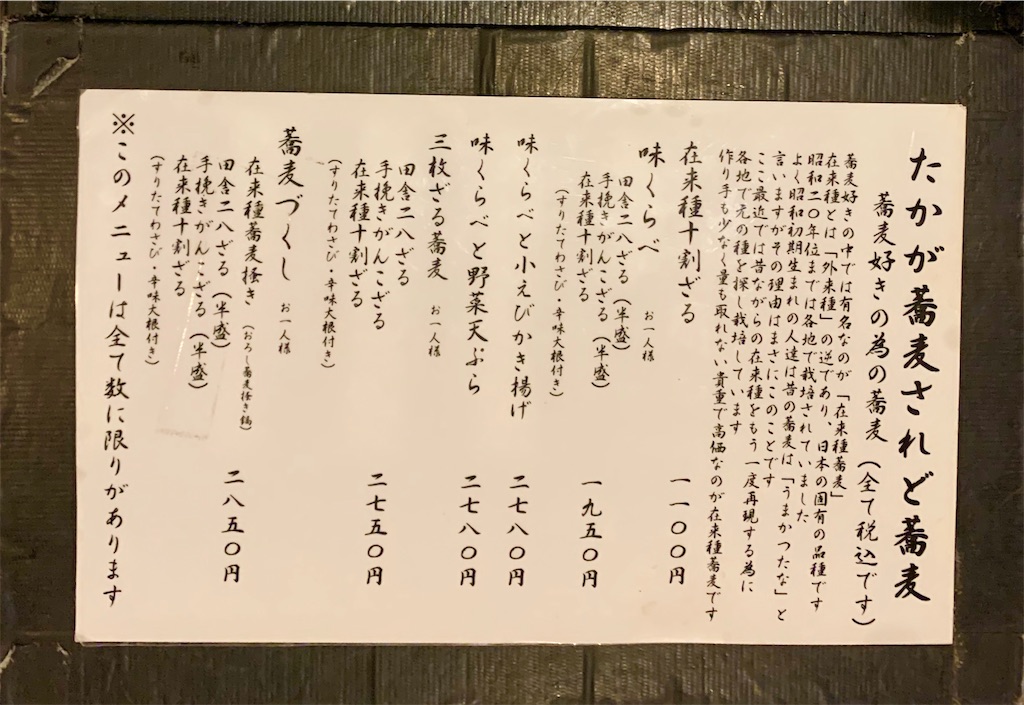 たかが蕎麦されど蕎麦
蕎麦好きの為の蕎麦(全て税込です)
蕎麦好きの中では有名なのが「在来種蕎麦」
在来種とは「外来種」の逆であり、日本の固有の品種です
昭和二〇年位までは各地で栽培されていました
よく昭和初期生まれの人達は昔の蕎麦は「うまかつたな」と
言いますがその理由はまさにこのことです
ここ最近では昔ながらの在来種をもう一度再現する為に
各地で元の種を探し栽培しています
作り手も少なく量も取れない貴重で高価なのが在来種蕎麦です
在来種十割ざる 一一〇〇円
味くらべ お一人様
田舎二八ざる(半盛)
手挽きがんこざる(半盛)
在来種十割ざる 一九五〇円
(すりたてわさび・辛味大根付き)
味くらべと小えびかき揚げ 二七八〇円
味くらべと野菜天ぷら 二七八〇円
三枚ざる蕎麦 お一人様
田舎二八ざる
手挽きがんこざる
在来種十割ざる 二七五〇円
(すりたてわさび・辛味大根付き)
蕎麦づくし お一人様
在来種蕎麦掻き(おろし蕎麦掻き鍋)
田舎二八ざる(半盛) 二八五〇円
手挽きがんこざる(半盛)
在来種十割ざる
(すりたてわさび・辛味大根付き)
※このメニューは全て数に限りがあります